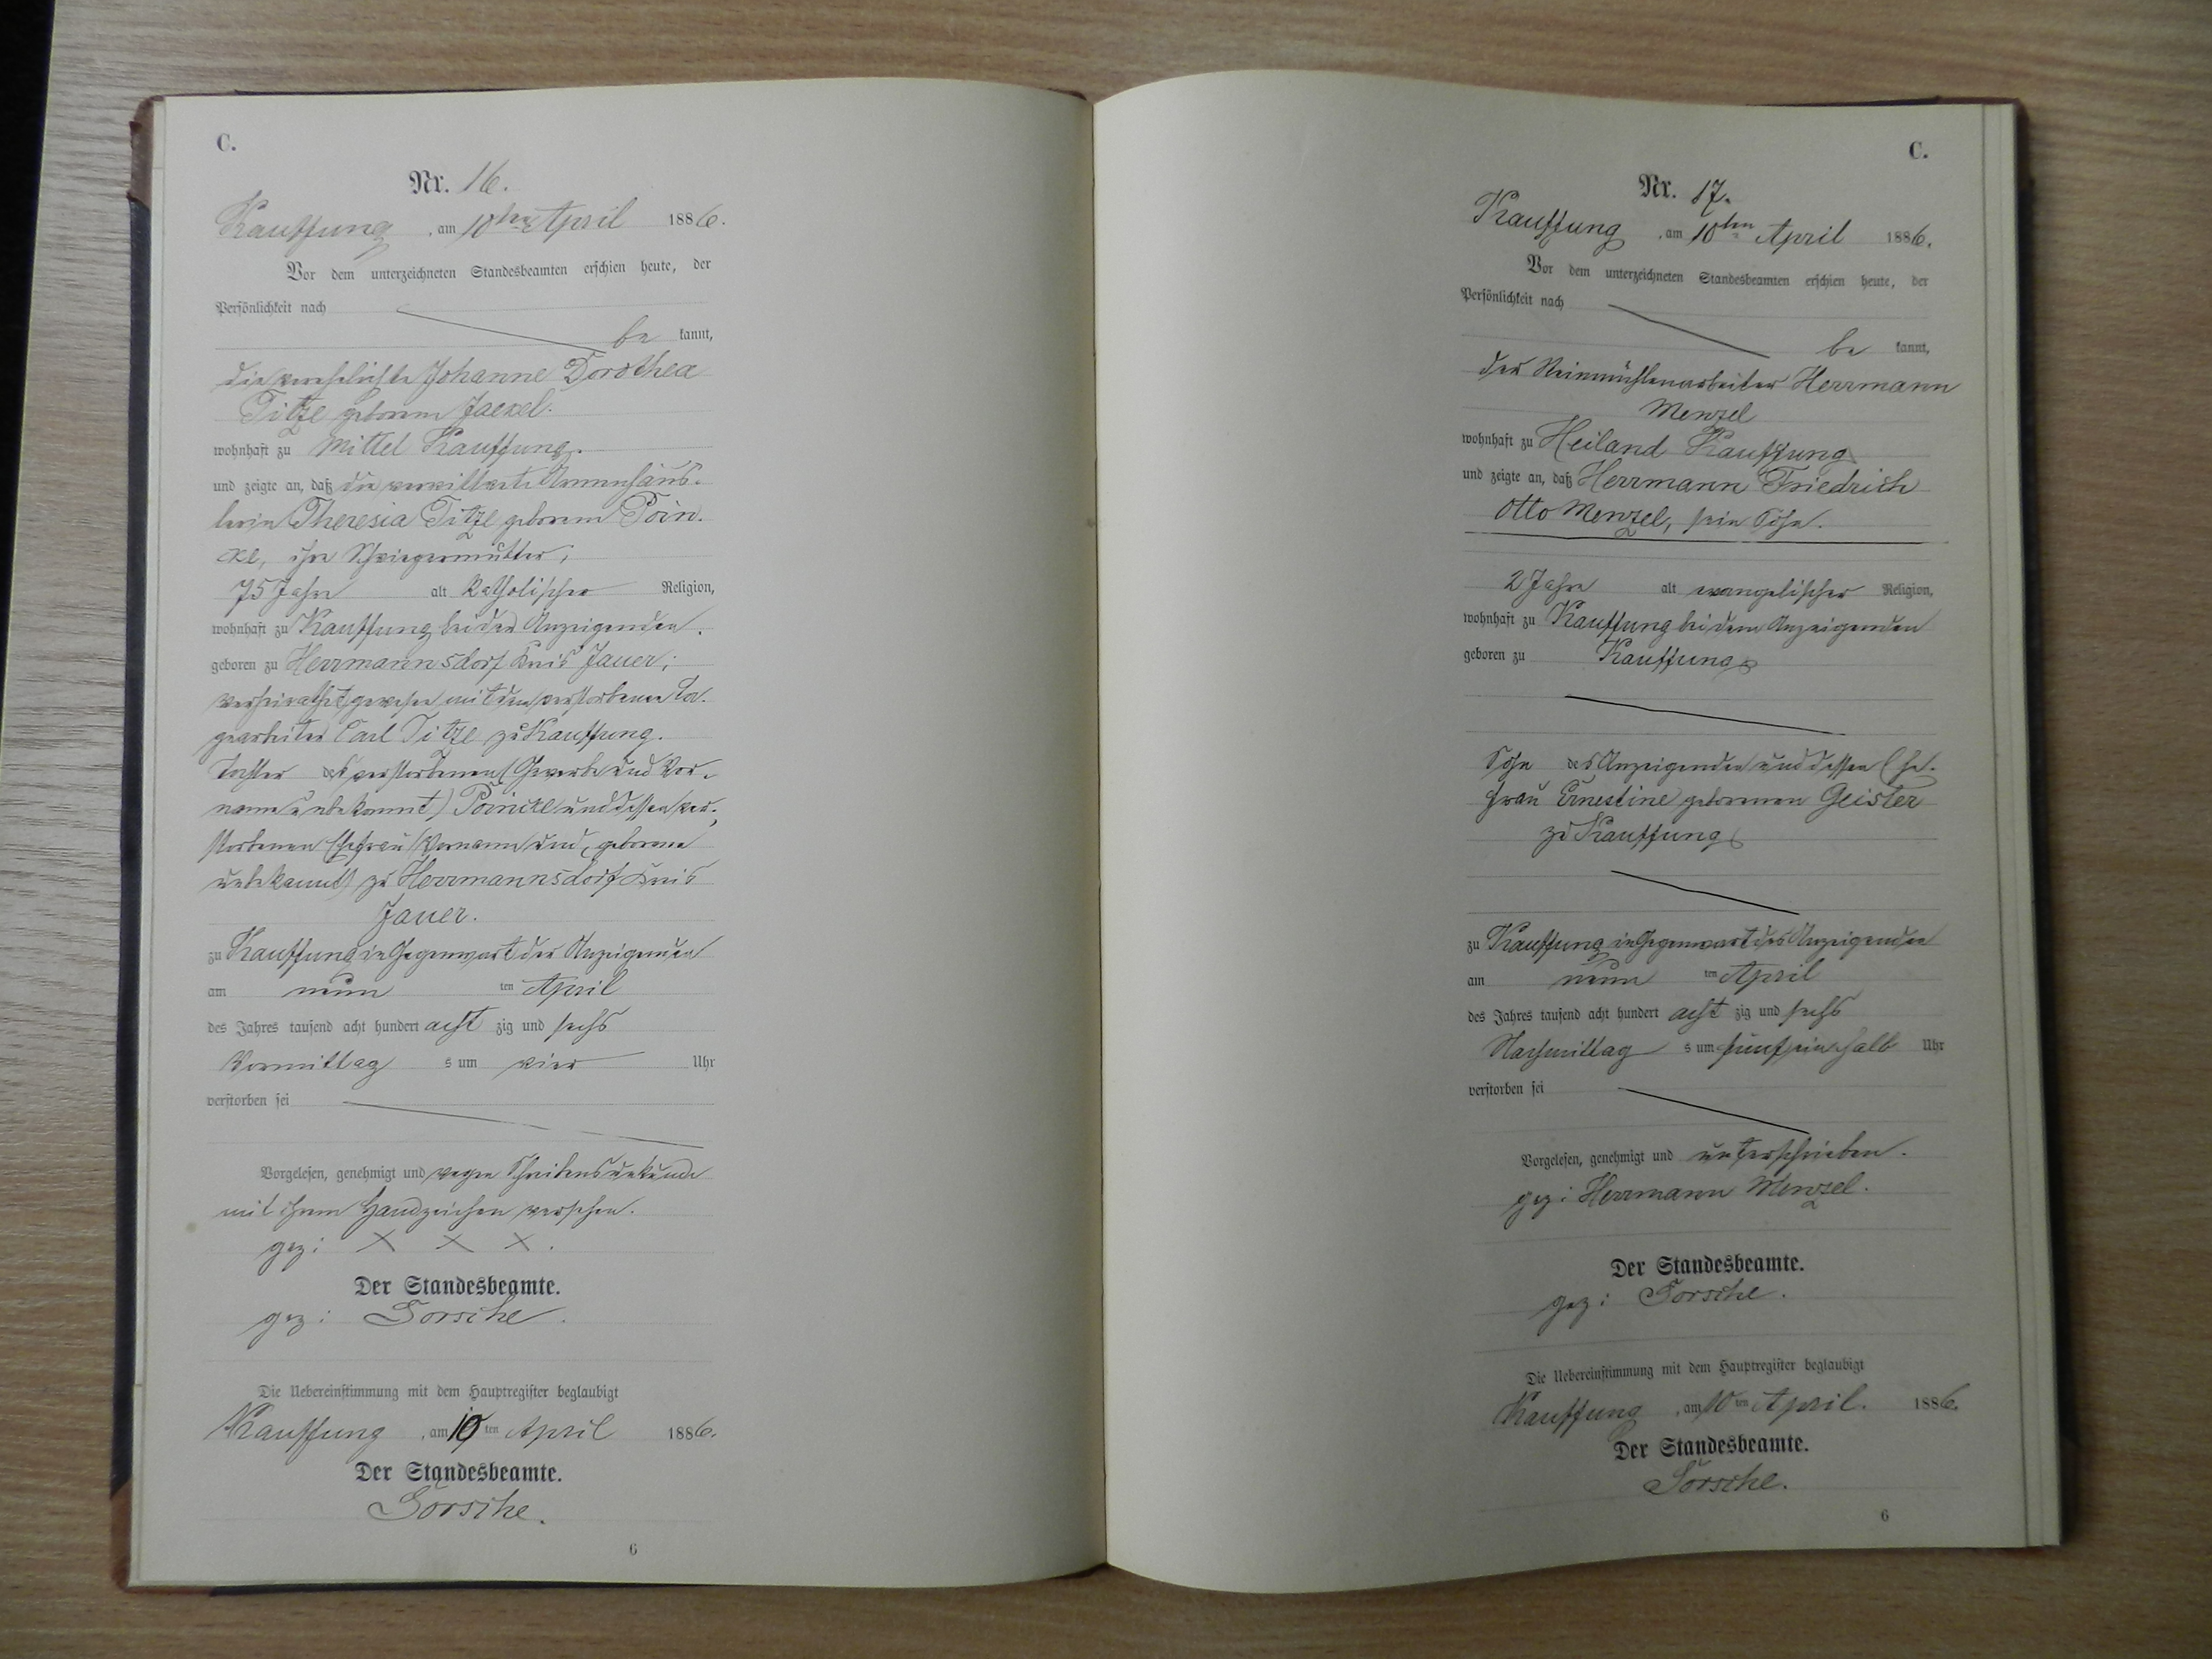 C.
Nr. 16.
Kauffung, am 10ten April 1886.
Vor dem unterzeichneten Standesbeamten erschien heute, der
Persönlichkeit nach
be kannt,
die verehelichte Johanne Dorothea
Titze geborene Jaekel.
wohnhaft zu Mittel Kauffung.
und zeigte an, daß die verwittwete
Theresia Titze geborene Poin-
cke, ihre Schwiegermutter,
75 Jahre alt katholischer Religion,
wohnhaft zu Kauffung bei der Anzeigenden.
geboren zu Herrmannsdorf Kreis Jauer;
verheirathet gewesen mit dem verstorbenen Ta-
gearbeiter Carl Titze zu Kauffung.
Tochter des verstorbenen (Gewerbe und Vor-
name unbekannt) Poincke und dessen ver-
storbenen Ehefrau (Vorname und, geborene
unbekannt) zu Herrmannsdorf Kreis
Jauer.
zu Kauffung in Gegenwart der Anzeigenden
am neun ten April
des Jahres tausend acht hundert acht zig und sechs
Vormittag s um vier Uhr
verstorben sei
Vorgelesen, genehmigt und wegen Schreibensunkunde
mit ihrem Handzeichen versehen.
gez: X X X.
Der Standesbeamte.
gez: Sorsche.
Die Uebereinstimmung mit dem Hauptregister beglaubigt
Kauffung, am 10ten April 1886.
Der Standesbeamte.
Sorsche.
6
C.
Nr. 17.
Kauffung, am 10ten April 1886.
Vor dem unterzeichneten Standesbeamten erschien heute, der
Persönlichkeit nach
be kannt,
der Steinmühlenarbeiter Herrmann
Menzel
wohnhaft zu Heiland Kauffung
und zeigte an, daß Herrmann Friedrich
Otto Menzel, sein Sohn.
2 Jahre alt evangelischer Religion,
wohnhaft zu Kauffung bei dem Anzeigenden
geboren zu Kauffung
Sohn des Anzeigenden und dessen Ehe-
frau Ernestine geborenen Geister
zu Kauffung
zu Kauffung in Gegenwart des Anzeigenden
am neun ten April
des Jahres tausend acht hundert acht zig und sechs
Nachmittag s um fünf ein halb Uhr
verstorben sei
Vorgelesen, genehmigt und unterschrieben.
gez: Herrmann Menzel.
Der Standesbeamte.
gez: Sorsche.
Die Uebereinstimmung mit dem Hauptregister beglaubigt
Kauffung, am 10ten April. 1886.
Der Standesbeamte.
Sorsche.
6